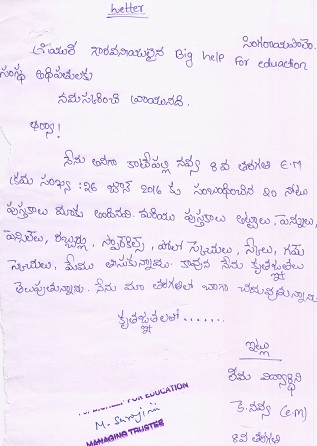 Letter
సింగరాయపాలెం.
ప్రియమైన గౌరవనీయులైన Big help for eduaction
సంస్థ అధిపతులకు
నమస్కరించి వ్రాయునది.
ఆర్యా!
నేను అనగా కాటేపల్లి నవ్య 8వ తరగతి E.M
క్రమ సంఖ్య :26 జూన్ 2016 కు సంబంధించిన 20 నోటు
పుస్తకాలు మాకు అందినవి. మరియు పుస్తకాల అట్టలు, పెన్నులు,
పెన్సిలు, రబ్బర్లు, స్కెచ్‌లు, స్కేలు, గమ్
మేము తీసుకున్నాము. కావున నేను కృతజ్ఞతలు
తెలుపుతున్నాను. నేను మా తరగతిలో బాగా చదువుతున్నాను
కృతజ్ఞతలతో.......
ఇట్లు
తమ విద్యార్థిని
కె.నవ్య (e.m)
8వ తరగతి
FOR EDUCATION
M. Surajini
MANAGING TRUSTEE